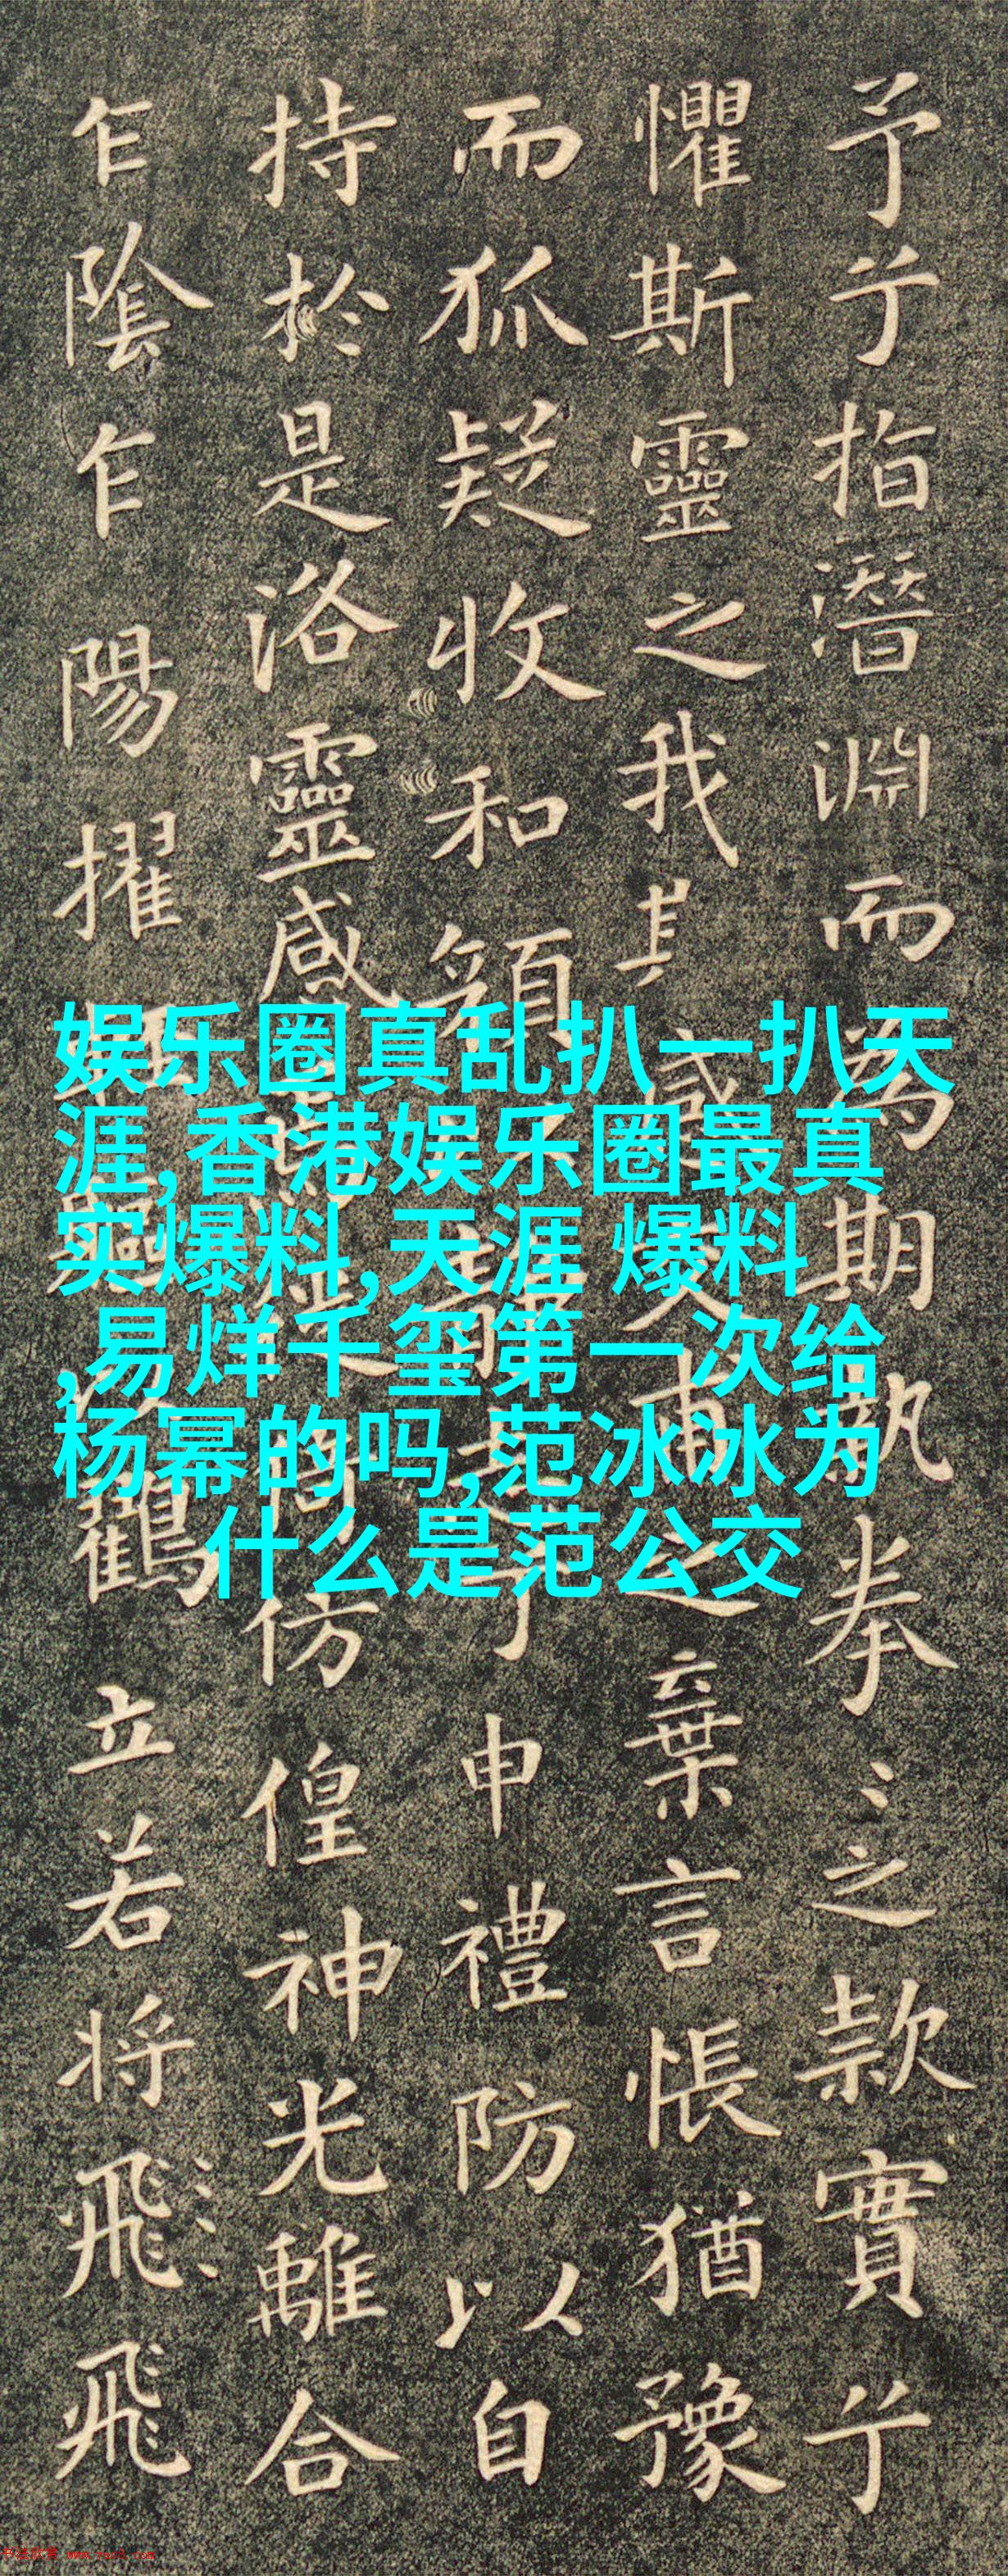 予兮指潛淵而為期執拳〻之款實兮
懼斯靈之我感交甫之棄言悵猶豫
而狐疑收和顏志兮申禮防以自
持於是洛靈感仿偟神光離合
乍陰乍陽擢軀以鶴立若將飛飛
娱乐圈真乱扒一扒天
涯,香港娱乐圈最真
实爆料,天涯 爆料
,易烊千玺第一次给
杨幂的吗,范冰冰为
什么是范公交